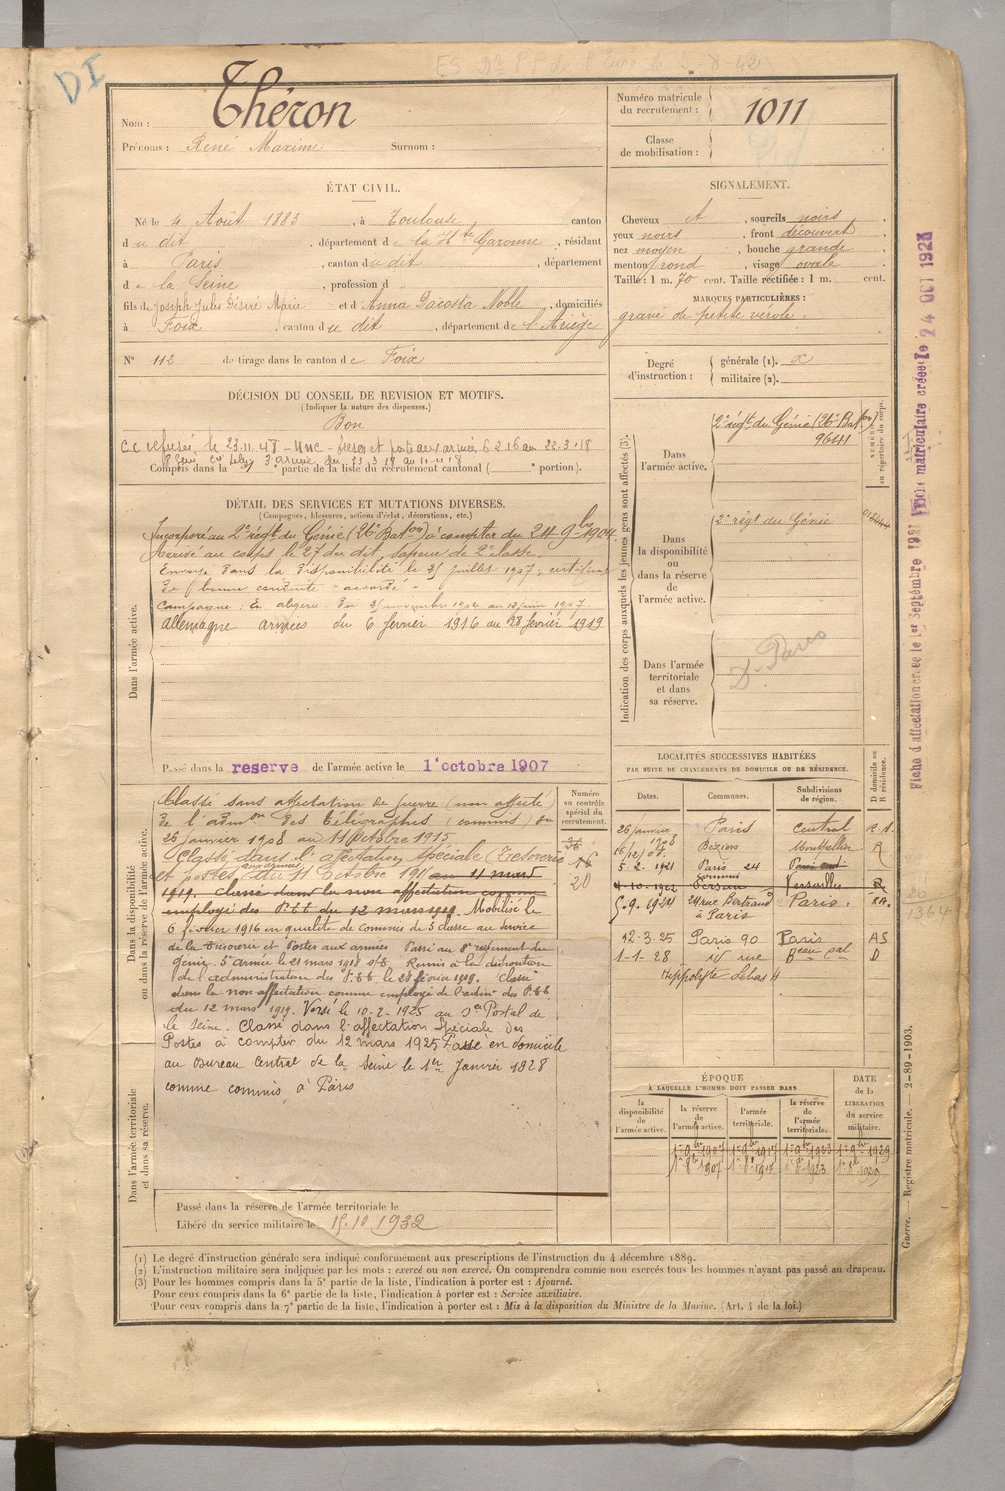 DI
Nom : Théron
Prénoms : René Maxime Surnom :
Numéro matricule du recrutement : 1011
Classe de mobilisation :
ÉTAT CIVIL.
Né le 4 Août 1883, à Toulouse canton
du dit, département de la Hte Garonne, résidant
à Paris, canton du dit, département
de la Seine, profession d
fils de Joseph Jules Désiré Marie et d'Anna Dacosta Noble, domiciliés
à Foix, canton du dit, département de l'Ariège
N° 112 de tirage dans le canton de Foix
SIGNALEMENT.
Cheveux sourcils noirs,
yeux noirs, front découvert,
nez moyen, bouche grande
menton rond, visage ovale
Taille : 1 m. 70 cent. Taille rectifiée : 1 m. cent.
MARQUES PARTICULIÈRES :
gravé de petite vérole.
Degré d'instruction :
générale (1).
militaire (2).
DÉCISION DU CONSEIL DE REVISION ET MOTIFS.
(Indiquer la nature des dispenses.)
Bon
C.C. refusée le 23.11.47 - aux armées 6 2 16 au 22.3.18
Compris dans la e partie de la liste du recrutement cantonal ( e portion).
DÉTAIL DES SERVICES ET MUTATIONS DIVERSES.
(Campagnes, blessures, actions d'éclat, décorations, etc.)
Dans l'armée active.
Incorporé au 2e régt du Génie (26e Baton) à compter du 24 9bre 1904.
Arrivé au corps le 27 du dit, sapeur de 2e classe.
Envoyé dans la disponibilité le juillet 1907, certificat
de bonne conduite "accordé"
Campagne : En algérie du novembre 1904 au juin 1907.
Allemagne armées du 6 février 1916 au 28 février 1919
Passé dans la reserve de l'armée active le 1 octobre 1907
Indication des corps auxquels les jeunes gens sont affectés (3).
NUMÉRO au répertoire du corps.
Dans l'armée active.
2e régt du Génie (26e Baton)
9641
Dans la disponibilité ou dans la réserve de l'armée active.
2e régt du Génie
Dans l'armée territoriale et dans sa réserve.
D. Paris
Dans la disponibilité ou dans la réserve de l'armée active.
Numéro au contrôle spécial du recrutement.
20
Classé sans affectation de guerre (non affecté)
de l'admon des télégraphes (commis) du
26 janvier 1908 au 11 octobre 1915
Classé dans l'affectation spéciale (Trésorerie
et postes aux armées) du 11 Octobre 191 au 11 mars
1919. classé dans la non affectation comme
employé des P.T.T du 12 mars 1919. Mobilisé le
6 février 1916 en qualité de Commis de 3 classe au service
de la Trésorerie et Postes aux armées Passé au 8e régiment du
Génie. 3e armée le 21 mars 1918 Remis à la disposition
de l'administration des P.T.T le 28 février 1919. Classé
dans la non affectation comme employé de l'admon des P.T.T
du 12 mars 1919. Versé le 10-2-1925 au Postal de
la Seine. Classé dans l'affectation Spéciale des
Postes à compter du 12 mars 1925 Passé en domicile
au Bureau Central de la Seine le 1er Janvier 1928
comme commis à Paris
Dans l'armée territoriale et dans sa réserve.
Passé dans la réserve de l'armée territoriale le
Libéré du service militaire le 15.10 1932
LOCALITÉS SUCCESSIVES HABITÉES
PAR SUITE DE CHANGEMENTS DE DOMICILE OU DE RÉSIDENCE.
Dates. Communes. Subdivisions de région. D domicile ou R résidence.
26 janvier 1908 Paris Central
16/12/08 Béziers Montpellier R
5.2.1921 Paris 24
4.10.1922 Versailles R
5.9.1924 24 rue Bertrand à Paris Paris.
12-3-25 Paris 90 Paris AS
1-1-28 id rue Hippolyte Lebas Beau cal D
20
1364
ÉPOQUE
À LAQUELLE L'HOMME DOIT PASSER DANS
la disponibilité de l'armée active. la réserve de l'armée active. l'armée territoriale. la réserve de l'armée territoriale.
DATE de la LIBÉRATION du service militaire.
1er 9bre 1907 1er 9bre 1917 1er 9bre 1923 1er 9bre 1929
1er 8bre 1907 1er 8bre 1917 1er 8bre 1923 1er 8bre 1929
(1) Le degré d'instruction générale sera indiqué conformément aux prescriptions de l'instruction du 4 décembre 1889.
(2) L'instruction militaire sera indiquée par les mots : exercé ou non exercé. On comprendra comme non exercés tous les hommes n'ayant pas passé au drapeau.
(3) Pour les hommes compris dans la 5e partie de la liste, l'indication à porter est : Ajourné.
Pour ceux compris dans la 6e partie de la liste, l'indication à porter est : Service auxiliaire.
Pour ceux compris dans la 7e partie de la liste, l'indication à porter est : Mis à la disposition du Ministre de la Marine. (Art. 4 de la loi.)
Guerre. — Registre matricule. — 2-89-1903.
Fiche d'affectation créée le 1er Septembre 1927 Fiche matriculaire créée le 24 OCT 1928